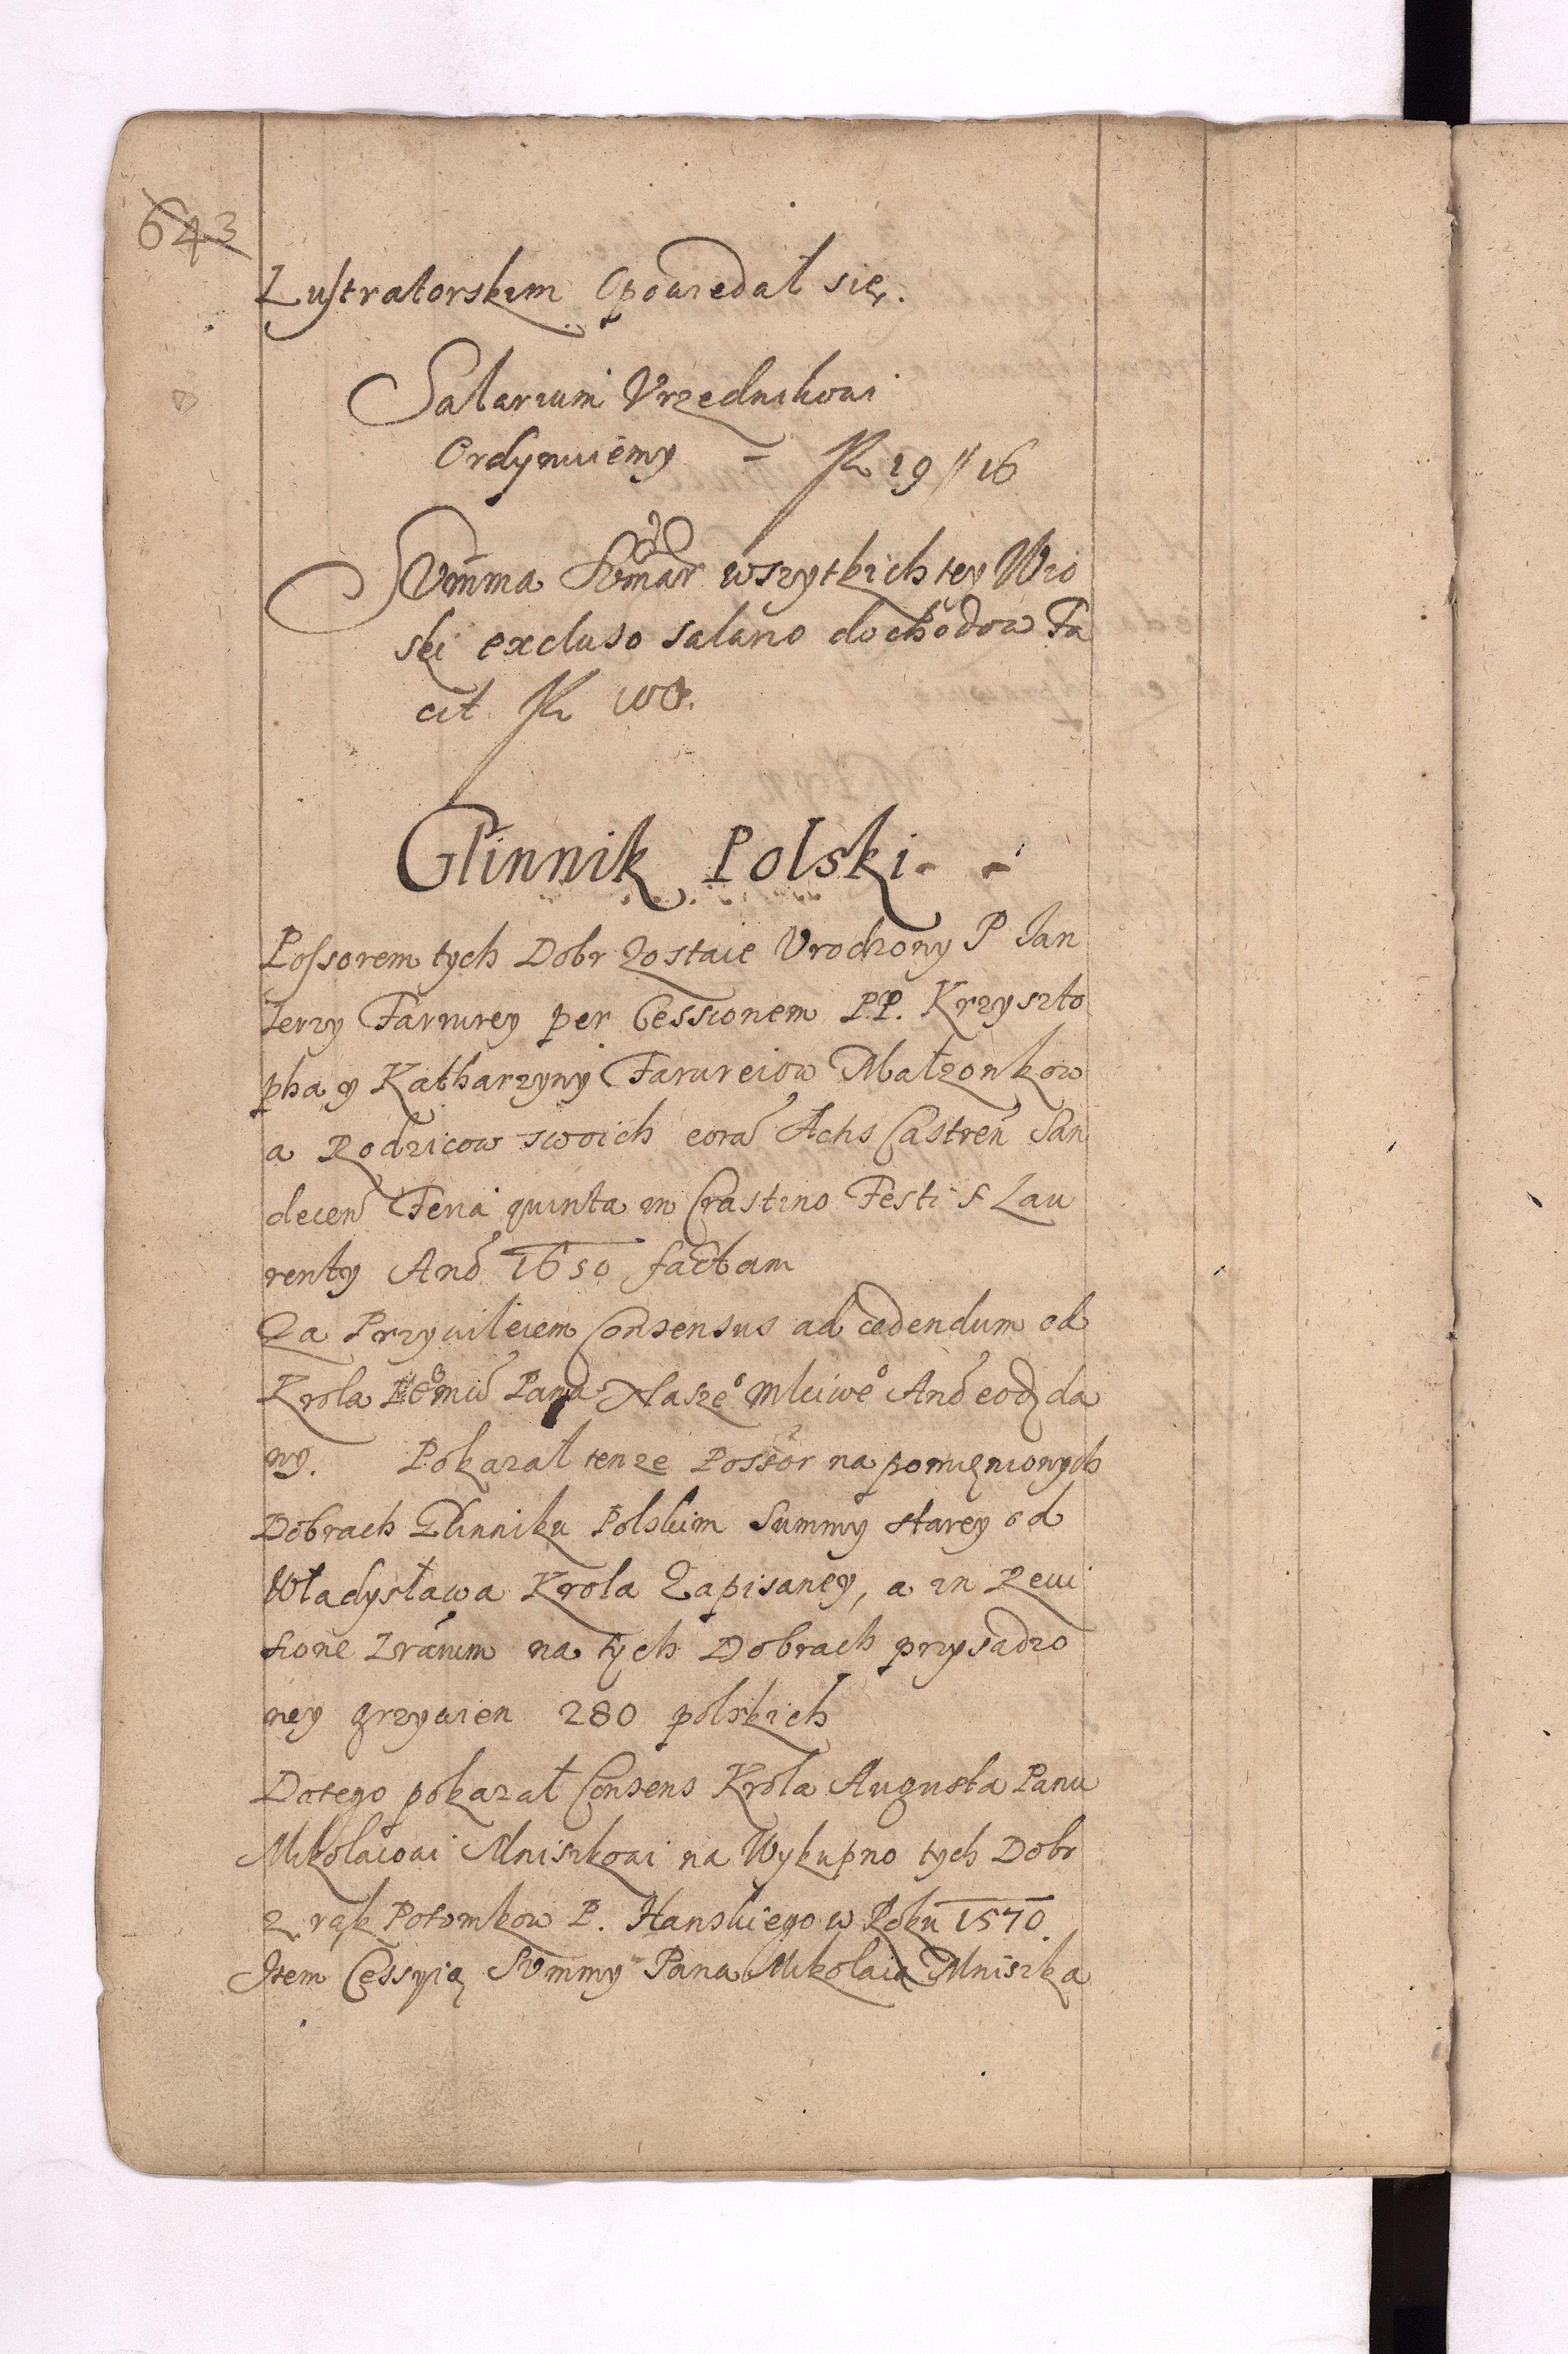 643
Lustratorskim Opowiedał się.
Salarium Vrzednikowi
Ordynuiemy - fl 19 // 16
Summa Summar wszytkich tey Wio
ski excluso salario dochodow Fa
cit fl 100.
Glinnik Polski - -
Possorem tych Dobr Zostaie Vrodzony P Ian
Ierzy Farrurey per Cessionem P.P. Krzyszto
pha y Katharzyny Farureiow Małzonkow
a Rodzicow swoich corã Actis Castreñ San
deceñ Feria quinta in Crastino Festi S Lau
renty Anõ 1650 factam
Za Przywileiem Consensus ad cedendum od
Krola Pana Naszeº Mlciweº Anõ eod da
ny. Pokazał tenze Possor na pomięnionych
Dobrach Glinniku Polskim Summy starey od
Władysława Krola Zapisaney, a in Reui
sione na tych Dobrach przysadzo
ney grzywien 280 polskich
Dotego pokazał Consens Krola Augusta Panu
Mikołaiowi Mniszkowi na Wykupno tych Dobr
z rąk Potomkow P. Hanskiego w Roku 1570.
Item Cessyią Summy Pana Mikołaia Mniszka